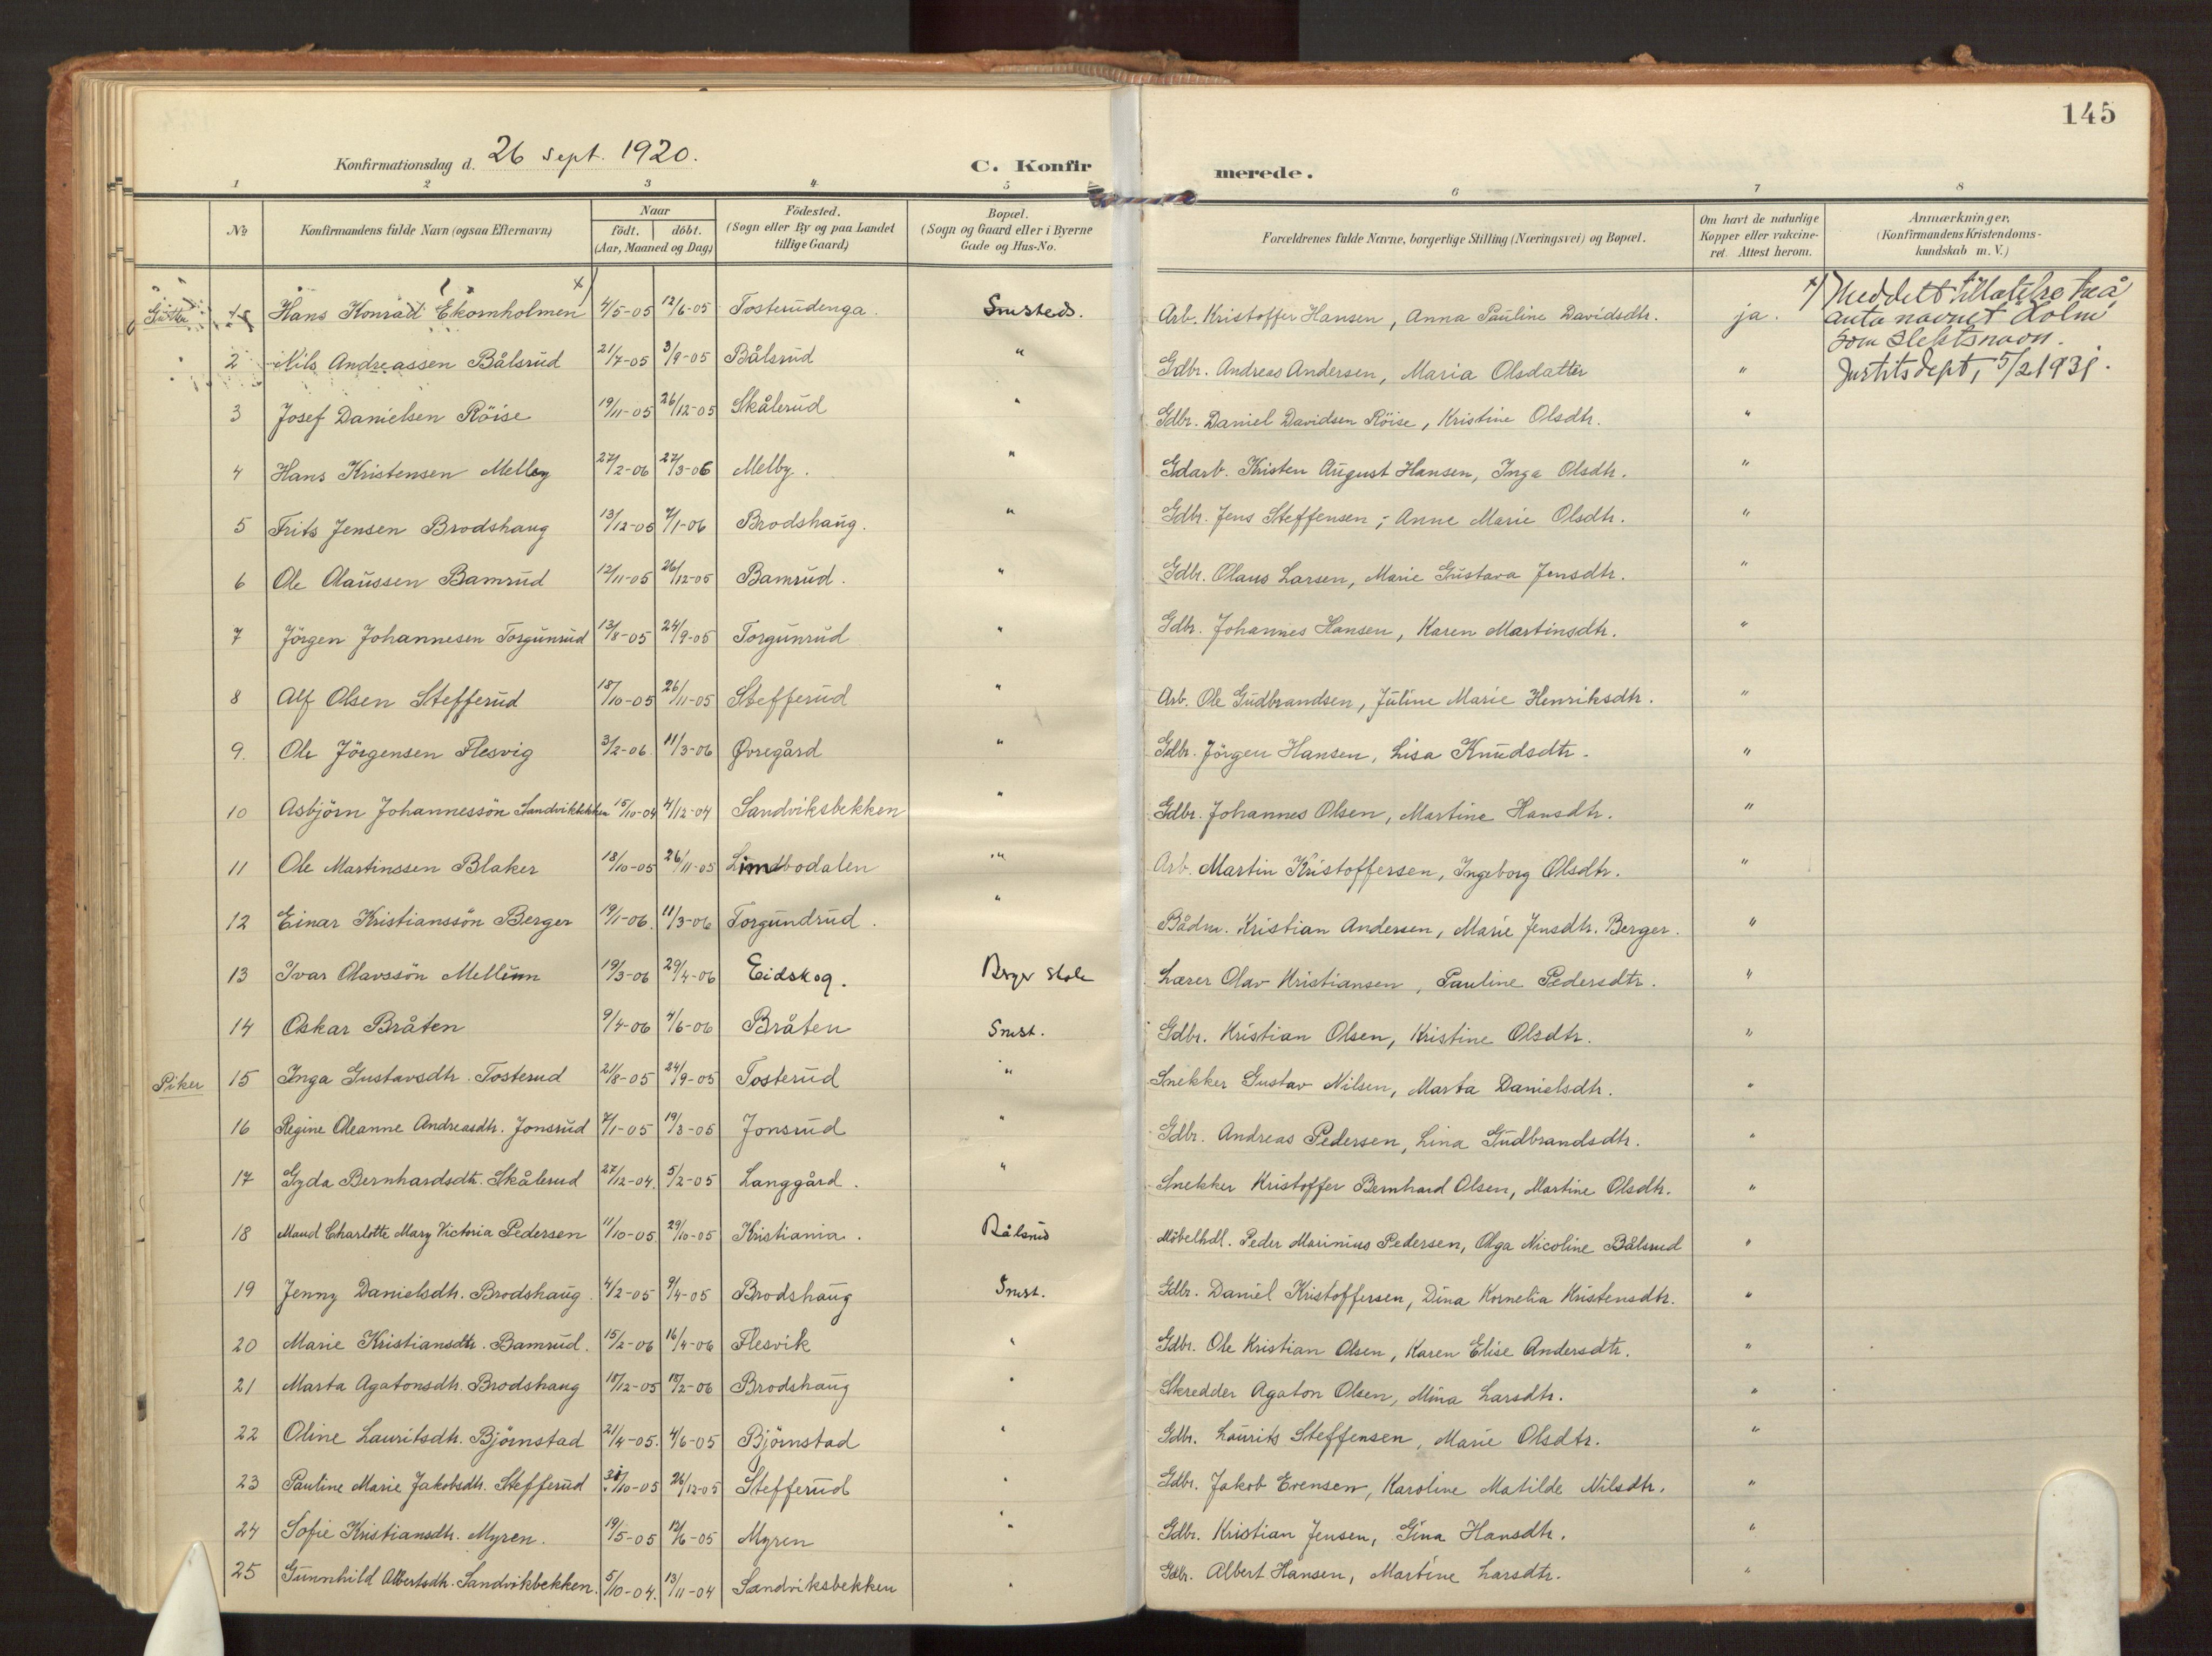 145
Konfirmationsdag d. 26 sept. 1920.
C. Konfir merede.
1 2 3 4 5 6 7 8
No Konfirmandens fulde Navn (ogsaa Efternavn) Naar født. døbt. (Aar, Maaned og Dag) Födested. (Sogn eller By og paa Landet tillige Gaard) Bopæl. (Sogn og Gaard eller i Byerne Gade og Hus-No. Forældrenes fulde Navne, borgerlige Stilling (Næringsvei) og Bopæl. Om havt de naturlige Kopper eller vakcineret. Attest herom. Anmærkninger. (Konfirmandens Kristendomskundskab m. V.)
Gutter 1 Hans Konrad Ekornholmen x) 4/5-05 12/6-05 Tosterudenga. Smsteds. Arb. Kristoffer Hansen, Anna Pauline Davidsdtr. ja. x) Meddelt tillatelse til å
anta navnet Holm
som slektsnavn.
Justitsdept, 5/2 1931.
2 Nils Andreassen Bålsrud 21/7-05 3/9-05 Bålsrud " Gdbr. Andreas Andersen, Maria Olsdatter "
3 Josef Danielsen Röise 19/11-05 26/12-05 Skålerud " Gdbr. Daniel Davidsen Röise, Kristine Olsdtr. "
4 Hans Kristensen Melby 27/2-06 27/3-06 Melby. " Gdarb. Kristen August Hansen, Inga Olsdtr. "
5 Frits Jensen Brodshaug 13/12-05 7/1-06 Brodshaug. " Gdbr. Jens Steffensen, Anne Marie Olsdtr. "
6 Ole Olaussen Bamrud 12/11-05 26/12-05 Bamrud. " Gdbr. Olaus Larsen, Marie Gustava Jensdtr. "
7 Jörgen Johannesen Torgunrud 13/8-05 24/9-05 Torgunrud " Gdbr. Johannes Hansen, Karen Martinsdtr. "
8 Alf Olsen Stefferud 18/10-05 26/11-05 Stefferud " Arb. Ole Gudbrandsen, Juline Marie Henriksdtr. "
9. Ole Jörgensen Flesvig 3/2-06. 11/3-06 Øvregård " Gdbr. Jörgen Hansen, Lisa Knudsdtr. "
10 Asbjörn Johannessön Sandvikbekken 15/10-04 4/12-04 Sandviksbekken " Gdbr. Johannes Olsen, Martine Hansdtr. "
11 Ole Martinssen Blaker 18/10-05 26/11-05 Limdbodalen " Arb. Martin Kristoffersen, Ingeborg Olsdtr. "
12 Einar Kristianssön Berger 19/1-06. 11/3-06 Torgundrud. " Bådm. Kristian Andersen, Marie Jensdtr. Berger. "
13 Ivar Olavssön Mellum 19/3-06 29/4-06 Eidskog. Berger skole Lærer Olav Kristiansen, Pauline Pedersdtr. "
14 Oskar Bråten 9/4-06 4/6-06 Bråten Smst. Gdbr. Kristian Olsen, Kristine Olsdtr. "
Piker 15 Inga Gustavsdtr. Tosterud 21/8-05 24/9-05 Tosterud " Snekker Gustav Nilsen, Marta Danielsdtr. "
16 Regine Oleanne Andreasdtr. Jonsrud 7/1-05 19/3-05 Jonsrud " Gdbr. Andreas Pedersen, Lina Gudbrandsdtr. "
17 Gyda Bernhardsdtr. Skålerud 27/12-04. 5/2-05 Langgård. " Snekker Kristoffer Bernhard Olsen, Martine Olsdtr. "
18 Maud Charlotte Mary Victoria Pedersen 11/10-05 29/10-05 Kristiania. Bålsrud Möbelhdl. Peder Marinius Pedersen, Olga Nicoline Bålsrud "
19 Jenny Danielsdtr. Brodshaug. 4/2-05 9/4-05 Brodshaug Smst. Gdbr. Daniel Kristoffersen, Dina Kornelia Kristensdtr. "
20 Marie Kristiansdtr. Bamrud. 15/2-06 16/4-06 Flesvik " Gdbr. Ole Kristian Olsen, Karen Elise Andersdtr. "
21 Marta Agatonsdtr. Brodshaug 18/12-05 18/2-06 Brodshaug " Skredder Agaton Olsen, Mina Larsdtr. "
22 Oline Lauritsdtr. Björnstad 21/4-05. 4/6-05 Björnstad " Gdbr. Laurits Steffensen, Marie Olsdtr. "
23 Pauline Marie Jakobsdtr. Stefferud 31/10-05 26/12-05 Stefferud " Gdbr. Jakob Evensen, Karoline Matilde Nilsdtr. "
24 Sofie Kristiansdtr. Myren. 19/5-05 12/6-05 Myren " Gdbr. Kristian Jensen, Gina Hansdtr. "
25 Gunnhild Albertsdtr. Sandvikbekken. 5/10-04. 13/11-04 Sandviksbekken " Gdbr. Albert Hansen, Martine Larsdtr. "